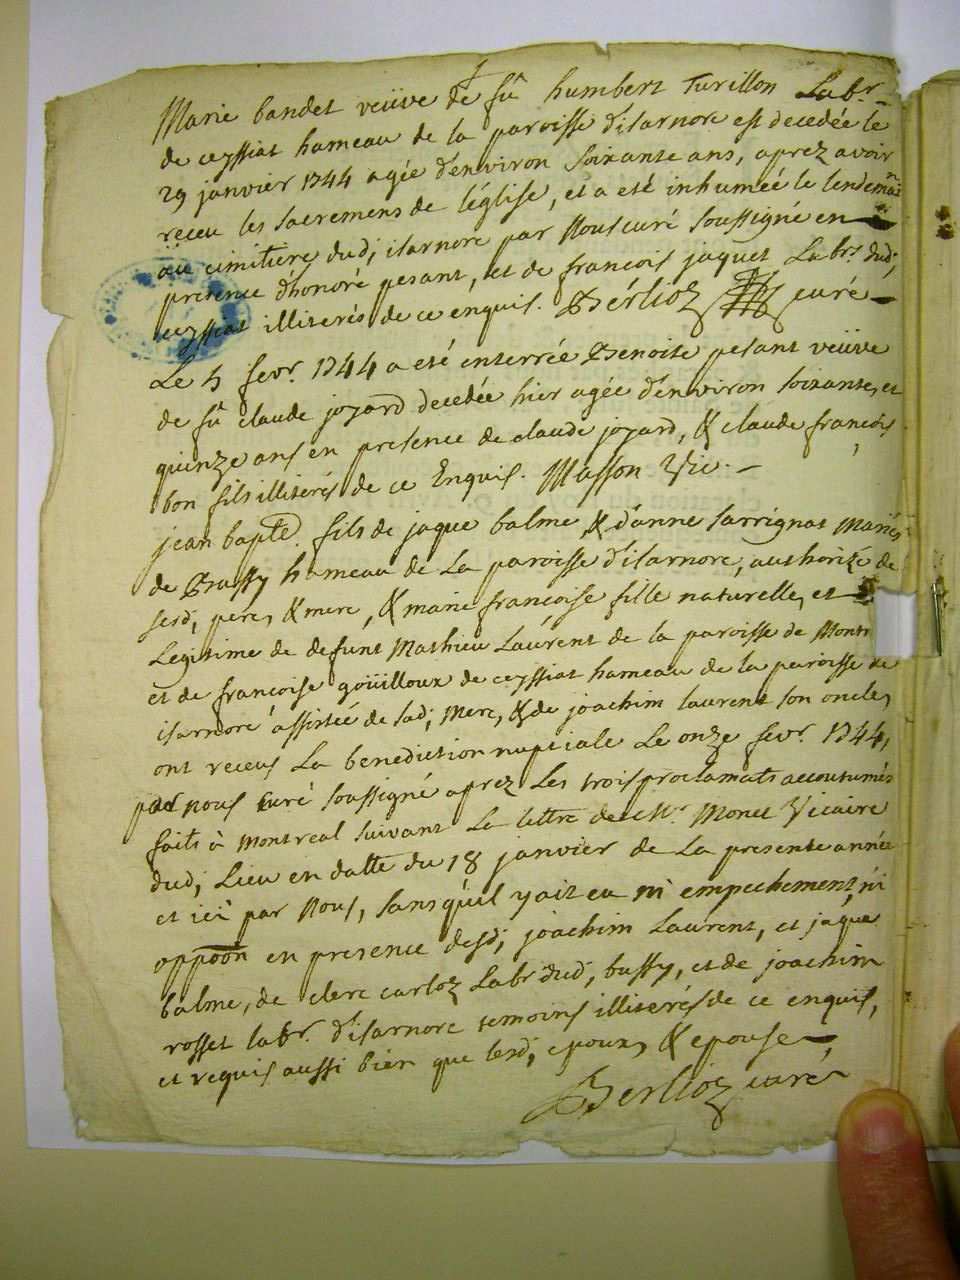 Marie bandet veüve de fû humbert Turillon Labr.
de ceyssiat hameau de la paroisse d'isarnore est decedée le
29 janvier 1744 agée d'environ soixante ans, aprez avoir
receu les sacremens de l'église, et a eté inhumée le lendemain
au cimitiere dud; isarnore par Nous curé soussigné en
presence d'honoré pesant, et de francois jaquet Labr. dud;
ceyssiat illiterés de ce enquis. Berlioz curé
Le 5 fevr. 1744 a eté enterrée Benoite pesant veüve
de fû claude jozard decedée hier agée d'environ soixante, et
quinze ans en presence de claude jozard, & claude francois
bon fils illiterés de ce Enquis. Masson Vic.
jean bapte. fils de jaque balme, & d'anne sarrignat Mariés
de Bussy hameau de La paroisse d'isarnore, authorizé de
sesd, pere, & mere, & marie francoise fille naturelle, et
Legitime de defunt Mathieu Laurent de la paroisse de Montr
et de francoise goüilloux de ceyssiat hameau de la paroisse de
isarnore assistée de sad; Mere, & de joachim laurent son oncle,
ont receus La benediction nupciale Le onze fevr. 1744,
par nous curé soussigné aprez Les trois proclamats accoutumés
faits à Montreal suivant La lettre de Mr. Monet Vicaire
dud; Lieu en datte du 18 janvier de La presente année
et ici par Nous, sans qu'il y ait eu ni empechement, ni
oppoon en presence desd; joachim Laurent, et jaque
balme, de clere carloz Labr dud; bussy, et de joachim
rosset labr. d'isarnore temoins illiterés de ce enquis,
et requis aussi bien que lesd; epoux, & epouse
Berlioz curé